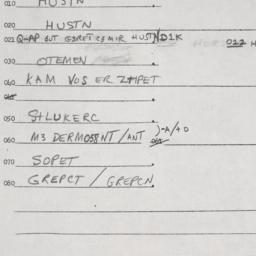 010 HUSTN
020 HUSTN
021 HUSTND1K 022 H
030 OTEMEN
040 KAM VOS ER ZAPET
050 StLUKERC
060 M3 DERMOSANT/ANT )-A/+D
070 SOPET
080 GREPCT / GREPCN